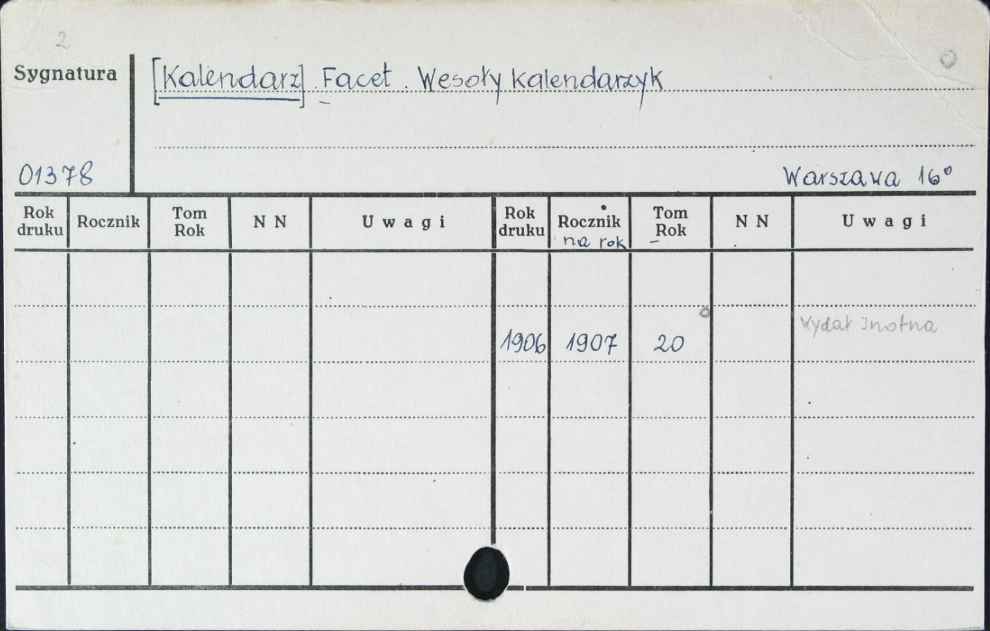 2
Sygnatura
[Kalendarz]. Facet. Wesoły kalendarzyk
01378
Warszawa 16°
Rok druku Rocznik Tom Rok N N Uwagi Rok druku Rocznik na rok Tom Rok N N Uwagi
1906 1907 20 Wydał